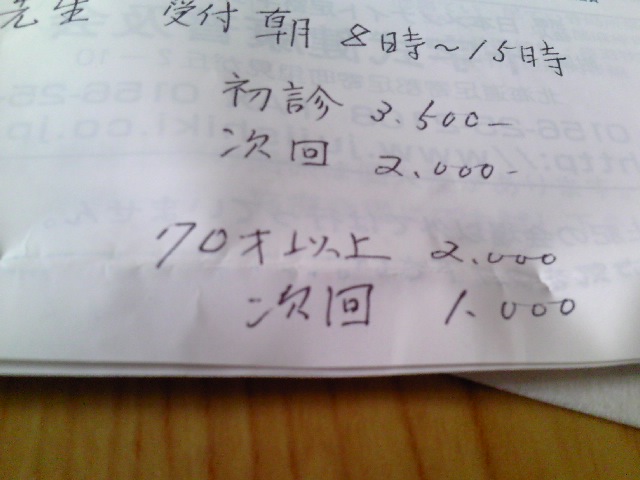 先生 受付 朝 8時~15時
初診 3.500-
次回 2.000-
70才以上 2.000
次回 1.000